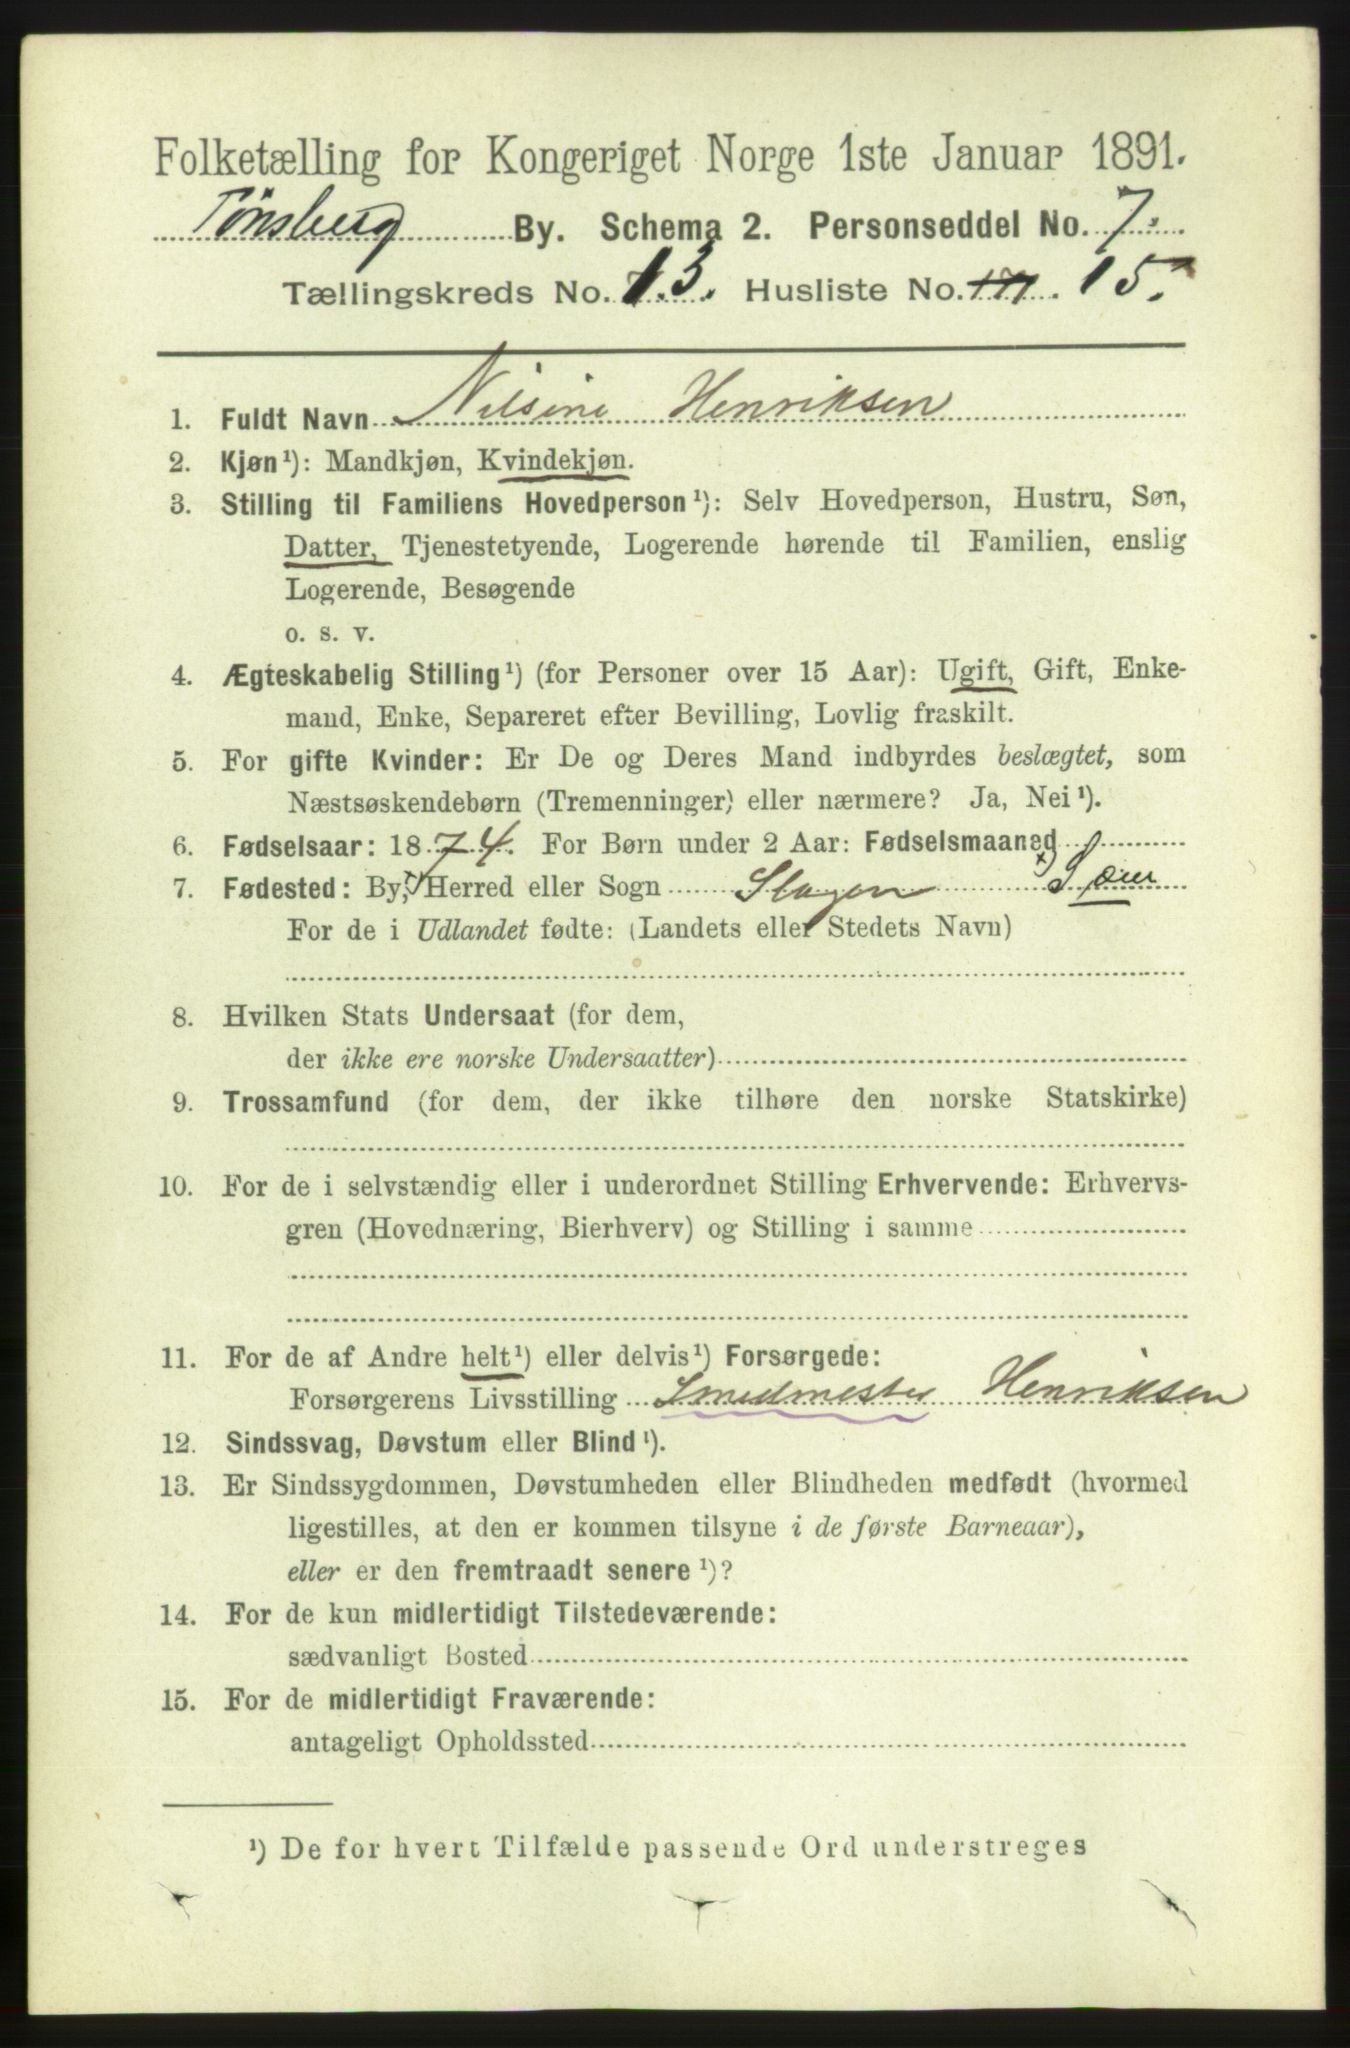 Folketælling for Kongeriget Norge 1ste Januar 1891.
Tønsberg By. Schema 2. Personseddel No. 7.
Tællingskreds No. 13. Husliste No. 15.
1. Fuldt Navn Nilsine Henriksen
2. Kjøn¹): Mandkjøn, Kvindekjøn.
3. Stilling til Familiens Hovedperson¹): Selv Hovedperson, Hustru, Søn,
Datter, Tjenestetyende, Logerende hørende til Familien, enslig
Logerende, Besøgende
o. s. v.
4. Ægteskabelig Stilling¹) (for Personer over 15 Aar): Ugift, Gift, Enke-
mand, Enke, Separeret efter Bevilling, Lovlig fraskilt.
5. For gifte Kvinder: Er De og Deres Mand indbyrdes beslægtet, som
Næstsøskendebørn (Tremenninger) eller nærmere? Ja, Nei¹).
6. Fødselsaar: 1874. For Børn under 2 Aar: Fødselsmaaned
7. Fødested: By, Herred eller Sogn Slagen x) Sœm
For de i Udlandet fødte: (Landets eller Stedets Navn)
8. Hvilken Stats Undersaat (for dem,
der ikke ere norske Undersaatter)
9. Trossamfund (for dem, der ikke tilhøre den norske Statskirke)
10. For de i selvstændig eller i underordnet Stilling Erhvervende: Erhvervs-
gren (Hovednæring, Bierhverv) og Stilling i samme
11. For de af Andre helt¹) eller delvis¹) Forsørgede:
Forsørgerens Livsstilling Smedmester Henriksen
12. Sindssvag, Døvstum eller Blind¹).
13. Er Sindssygdommen, Døvstumheden eller Blindheden medfødt (hvormed
ligestilles, at den er kommen tilsyne i de første Barneaar),
eller er den fremtraadt senere¹)?
14. For de kun midlertidigt Tilstedeværende:
sædvanligt Bosted
15. For de midlertidigt Fraværende:
antageligt Opholdssted
¹) De for hvert Tilfælde passende Ord understreges